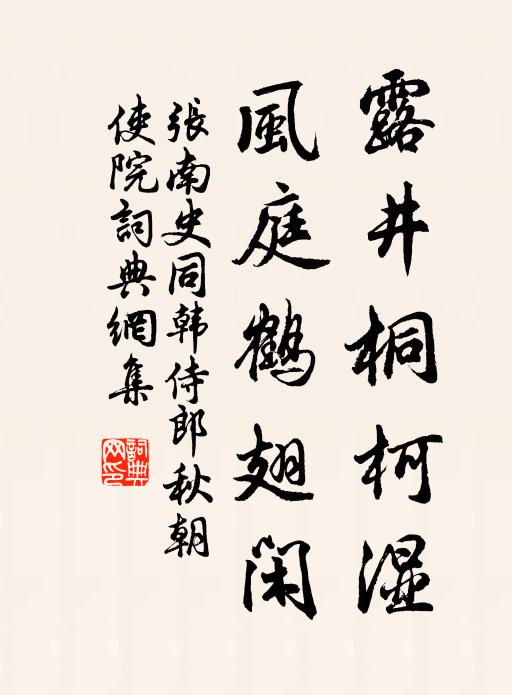 露井桐柯濕
風庭鶴翅閑
張南史同韩侍郎秋朝
使院詞典網集
詞典網印